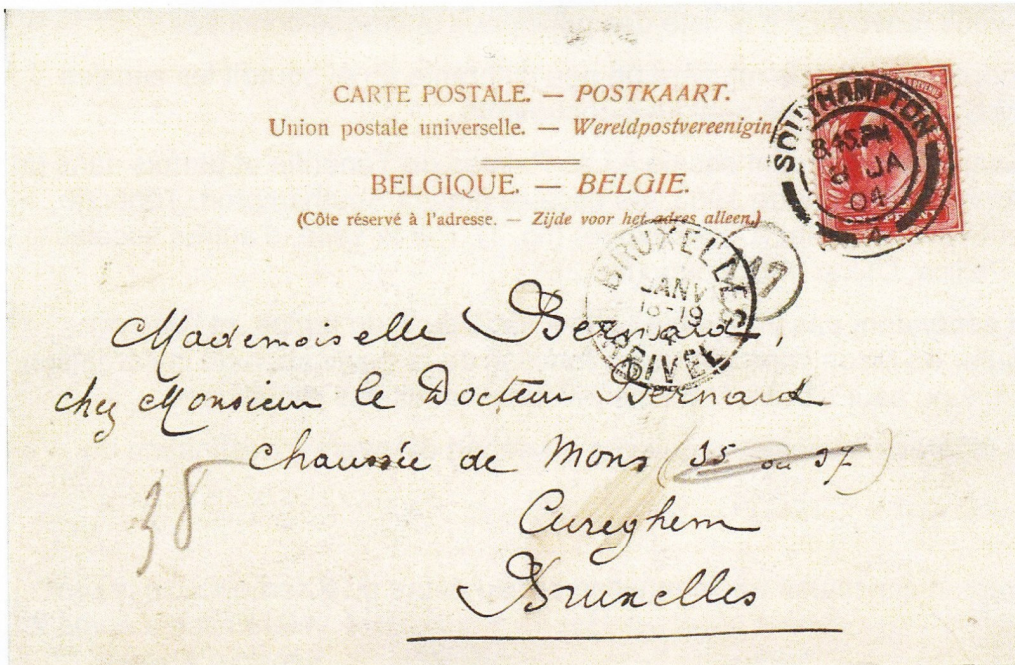 CARTE POSTALE. — POSTKAART.
Union postale universelle. — Wereldpostvereeniging
BELGIQUE. — BELGIE.
(Côte réservé à l'adresse. — Zijde voor het adres alleen.)
SOUTHAMPTON
8.45 PM
8 JA
04
4
BRUXELLES
JANV
18-19
ARRIVEE
47
Mademoiselle Bernard,
chez Monsieur le Docteur Bernard
Chaussée de Mons (35 ou 37)
38
Cureghem
Bruxelles